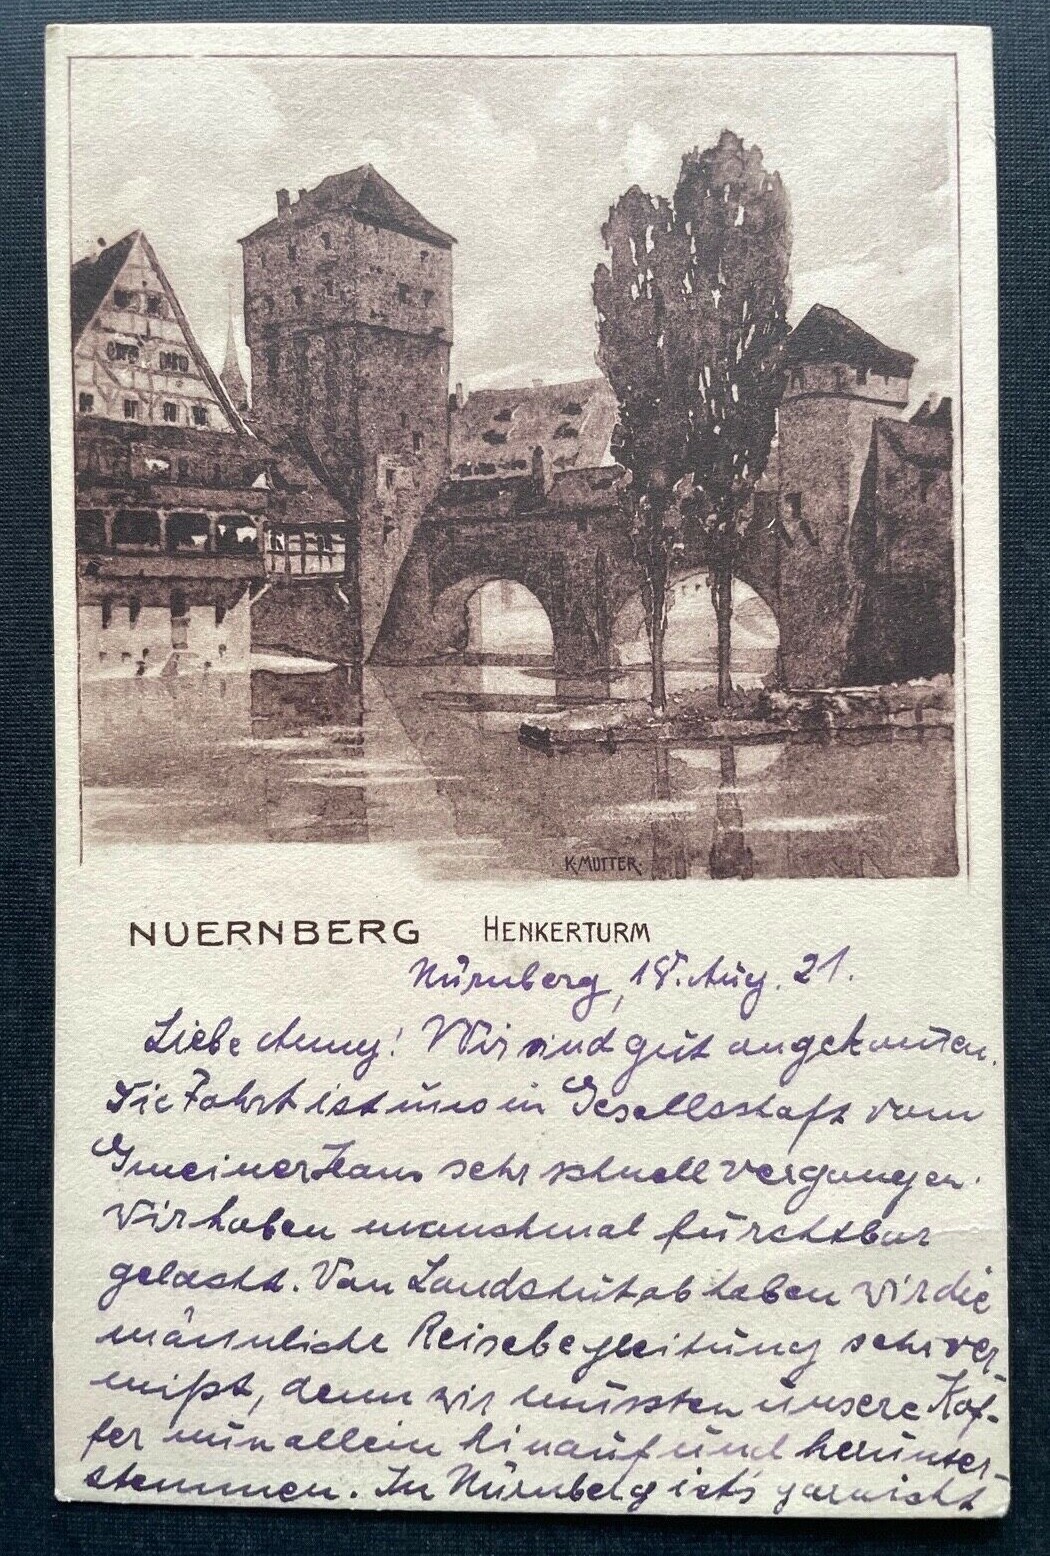 K. MUTTER.
NUERNBERG HENKERTURM
Nürnberg, 18. Aug. 21.
Liebe Anny! Wir sind gut angekommen.
Die Fahrt ist uns in Gesellschaft vom
Gmeiner Hans sehr schnell vergangen.
Wir haben manchmal furchtbar
gelacht. Von Landshut ab haben wir die
männliche Reisebegleitung sehr ver-
mißt, denn wir mussten unsere Kof-
fer nun allein hinauf und herunter-
stemmen. In Nürnberg ist's garnicht